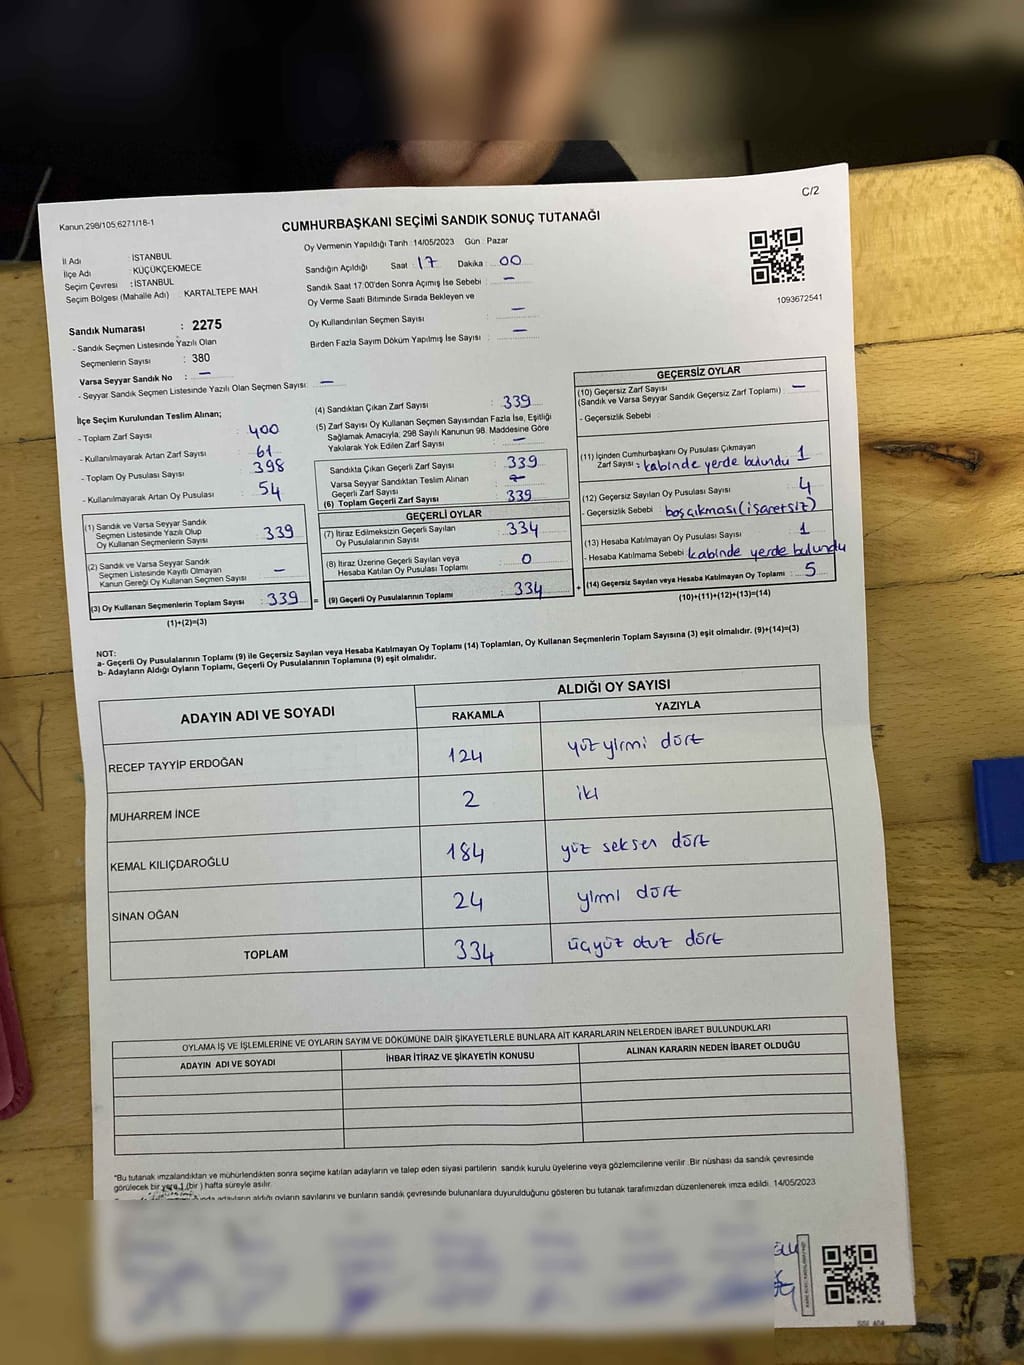 C/2
Kanun:298/105,6271/18-1
CUMHURBAŞKANI SEÇİMİ SANDIK SONUÇ TUTANAĞI
İl Adı : İSTANBUL
İlçe Adı : KÜÇÜKÇEKMECE
Seçim Çevresi : İSTANBUL
Seçim Bölgesi (Mahalle Adı) : KARTALTEPE MAH.
Oy Vermenin Yapıldığı Tarih :14/05/2023 Gün : Pazar
Sandığın Açıldığı Saat : 17 Dakika : 00
Sandık Saat 17:00'den Sonra Açılmış İse Sebebi : –
Oy Verme Saati Bitiminde Sırada Bekleyen ve
Oy Kullandırılan Seçmen Sayısı : –
Birden Fazla Sayım Döküm Yapılmış İse Sayısı : –
1093672541
Sandık Numarası : 2275
- Sandık Seçmen Listesinde Yazılı Olan
Seçmenlerin Sayısı : 380
Varsa Seyyar Sandık No : –
- Seyyar Sandık Seçmen Listesinde Yazılı Olan Seçmen Sayısı: –
İlçe Seçim Kurulundan Teslim Alınan;
- Toplam Zarf Sayısı : 400
- Kullanılmayarak Artan Zarf Sayısı : 61
- Toplam Oy Pusulası Sayısı : 398
- Kullanılmayarak Artan Oy Pusulası : 54
(1) Sandık ve Varsa Seyyar Sandık
Seçmen Listesinde Yazılı Olup
Oy Kullanan Seçmenlerin Sayısı : 339
(2) Sandık ve Varsa Seyyar Sandık
Seçmen Listesinde Kayıtlı Olmayan
Kanun Gereği Oy Kullanan Seçmen Sayısı : –
(3) Oy Kullanan Seçmenlerin Toplam Sayısı : 339 =
(1)+(2)=(3)
(4) Sandıktan Çıkan Zarf Sayısı : 339
(5) Zarf Sayısı Oy Kullanan Seçmen Sayısından Fazla İse, Eşitliği
Sağlamak Amacıyla, 298 Sayılı Kanunun 98. Maddesine Göre
Yakılarak Yok Edilen Zarf Sayısı : –
Sandıkta Çıkan Geçerli Zarf Sayısı : 339
Varsa Seyyar Sandıktan Teslim Alınan
Geçerli Zarf Sayısı : –
(6) Toplam Geçerli Zarf Sayısı : 339
GEÇERLİ OYLAR
(7) İtiraz Edilmeksizin Geçerli Sayılan
Oy Pusulalarının Sayısı : 334
(8) İtiraz Üzerine Geçerli Sayılan veya
Hesaba Katılan Oy Pusulası Toplamı : 0
(9) Geçerli Oy Pusulalarının Toplamı : 334 +
GEÇERSİZ OYLAR
(10) Geçersiz Zarf Sayısı
(Sandık ve Varsa Seyyar Sandık Geçersiz Zarf Toplamı) : –
- Geçersizlik Sebebi :
(11) İçinden Cumhurbaşkanı Oy Pusulası Çıkmayan
Zarf Sayısı : kabinde yerde bulundu 1
(12) Geçersiz Sayılan Oy Pusulası Sayısı : 4
- Geçersizlik Sebebi : boş çıkması (işaretsiz)
(13) Hesaba Katılmayan Oy Pusulası Sayısı : 1
- Hesaba Katılmama Sebebi : kabinde yerde bulundu
(14) Geçersiz Sayılan veya Hesaba Katılmayan Oy Toplamı : 5
(10)+(11)+(12)+(13)=(14)
NOT:
a- Geçerli Oy Pusulalarının Toplamı (9) ile Geçersiz Sayılan veya Hesaba Katılmayan Oy Toplamı (14) Toplamları, Oy Kullanan Seçmenlerin Toplam Sayısına (3) eşit olmalıdır. (9)+(14)=(3)
b- Adayların Aldığı Oyların Toplamı, Geçerli Oy Pusulalarının Toplamına (9) eşit olmalıdır.
ADAYIN ADI VE SOYADI
ALDIĞI OY SAYISI
RAKAMLA YAZIYLA
RECEP TAYYİP ERDOĞAN 124 yüz yirmi dört
MUHARREM İNCE 2 iki
KEMAL KILIÇDAROĞLU 184 yüz seksen dört
SİNAN OĞAN 24 yirmi dört
TOPLAM 334 üçyüz otuz dört
OYLAMA İŞ VE İŞLEMLERİNE VE OYLARIN SAYIM VE DÖKÜMÜNE DAİR ŞİKAYETLERLE BUNLARA AİT KARARLARIN NELERDEN İBARET BULUNDUKLARI
ADAYIN ADI VE SOYADI İHBAR İTİRAZ VE ŞİKAYETİN KONUSU ALINAN KARARIN NEDEN İBARET OLDUĞU
"Bu tutanak imzalandıktan ve mühürlendikten sonra seçime katılan adayların ve talep eden siyasi partilerin sandık kurulu üyelerine veya gözlemcilerine verilir. Bir nüshası da sandık çevresinde
görülecek bir yere 1 (bir) hafta süreyle asılır.
adayların aldığı oyların sayılarını ve bunların sandık çevresinde bulunanlara duyurulduğunu gösteren bu tutanak tarafımızdan düzenlenerek imza edildi. 14/05/2023